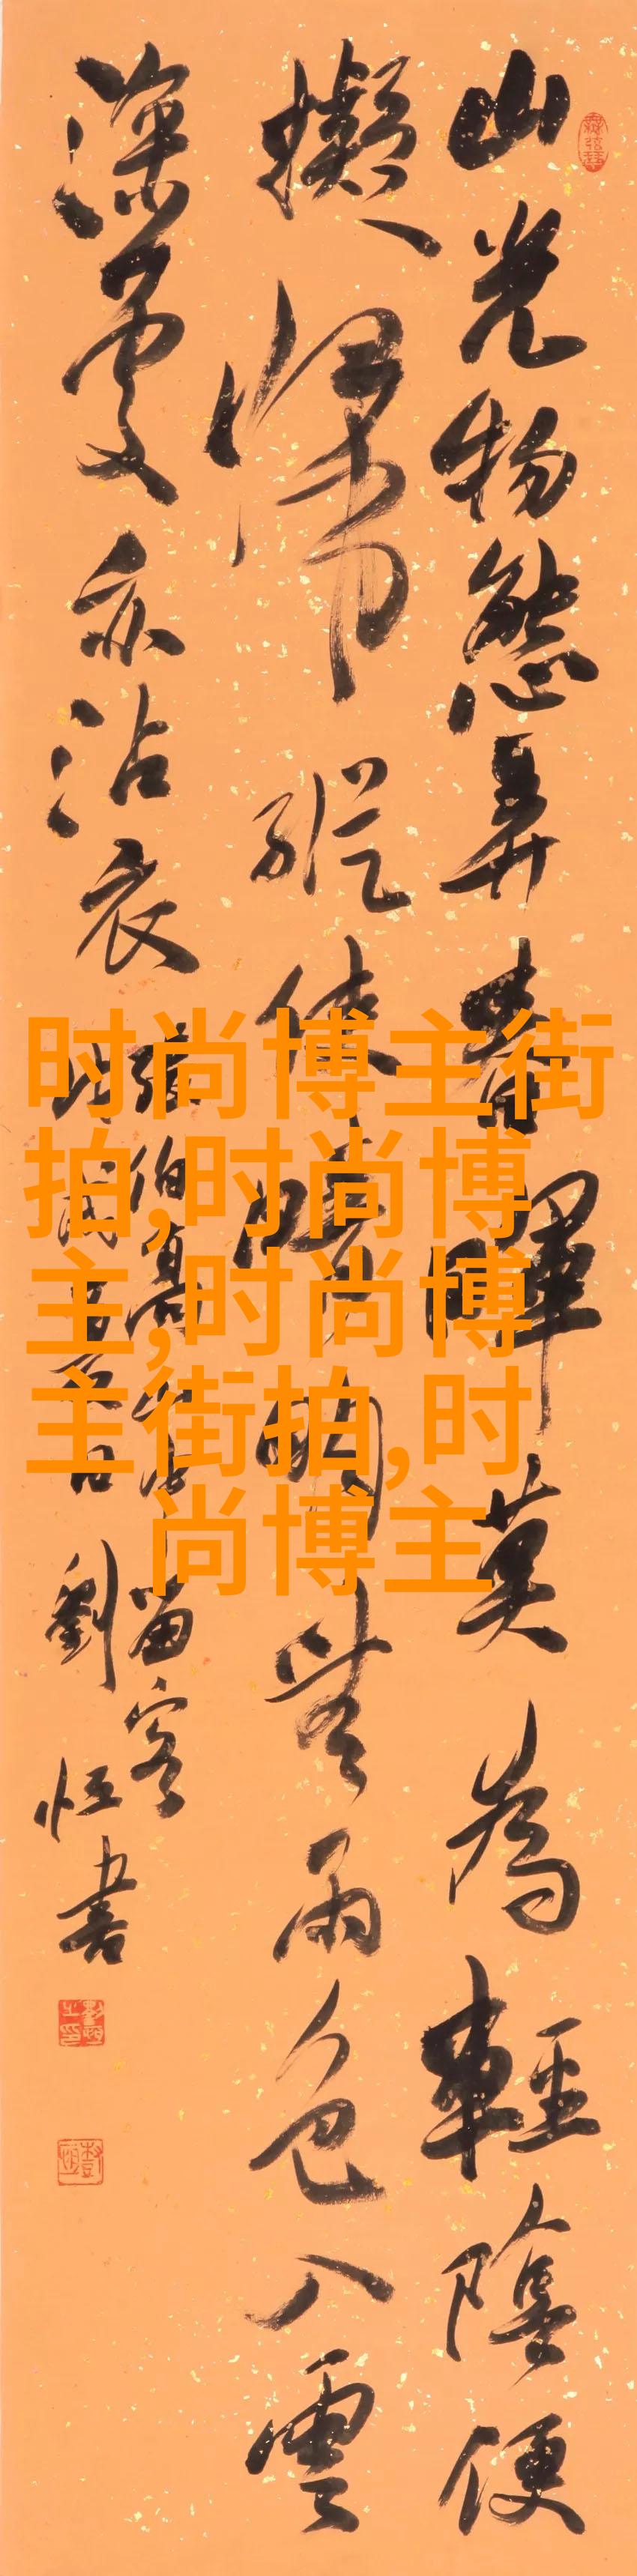 山光物態弄春暉莫為輕陰便
擬歸縱使晴明無雨色入雲
深處亦沾衣
張伯高山中留客
劉恒書
时尚博主街
拍,时尚博
主,时尚博
主街拍,时
尚博主